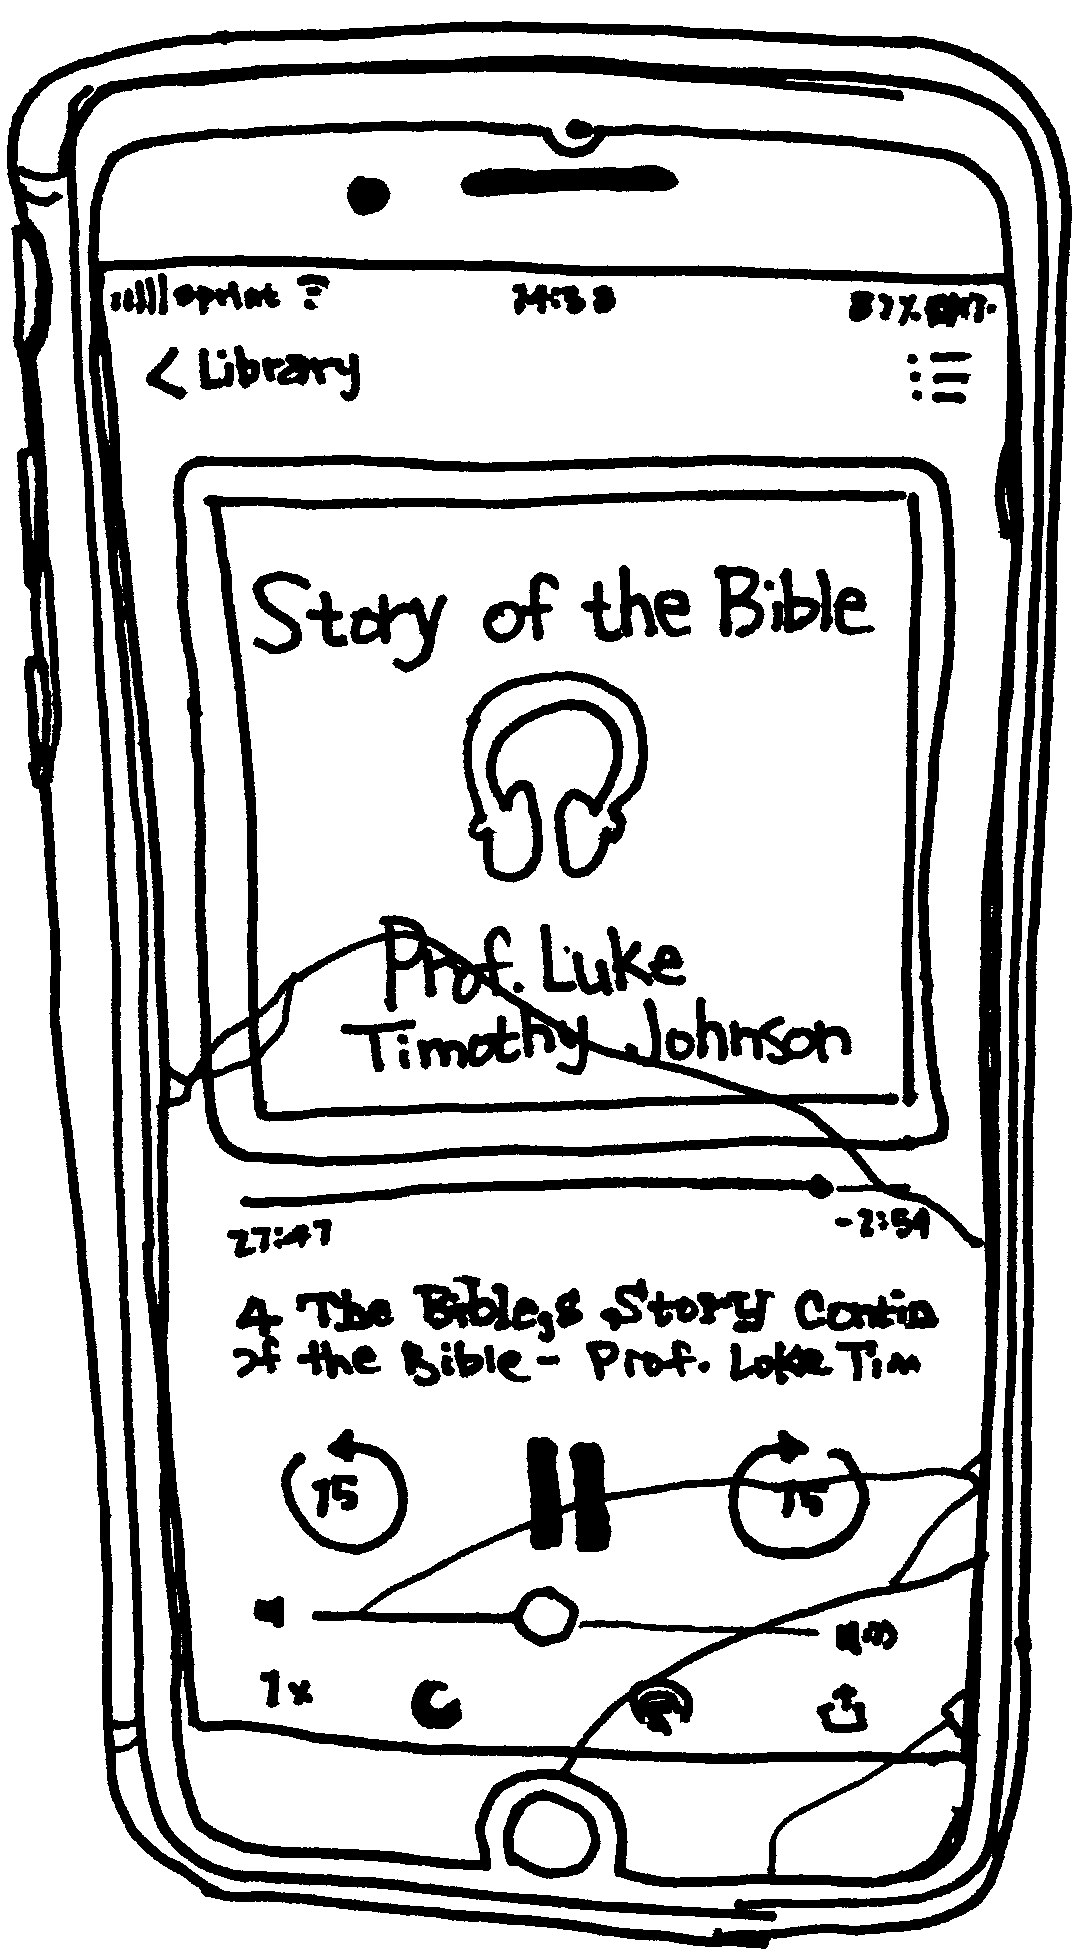 sprint
< Library
Story of the Bible
Prof. Luke
Timothy Johnson
27:47 -2:54
4 The Bible,s Story Contin
of the Bible - Prof. Luke Tim
15 15
1x